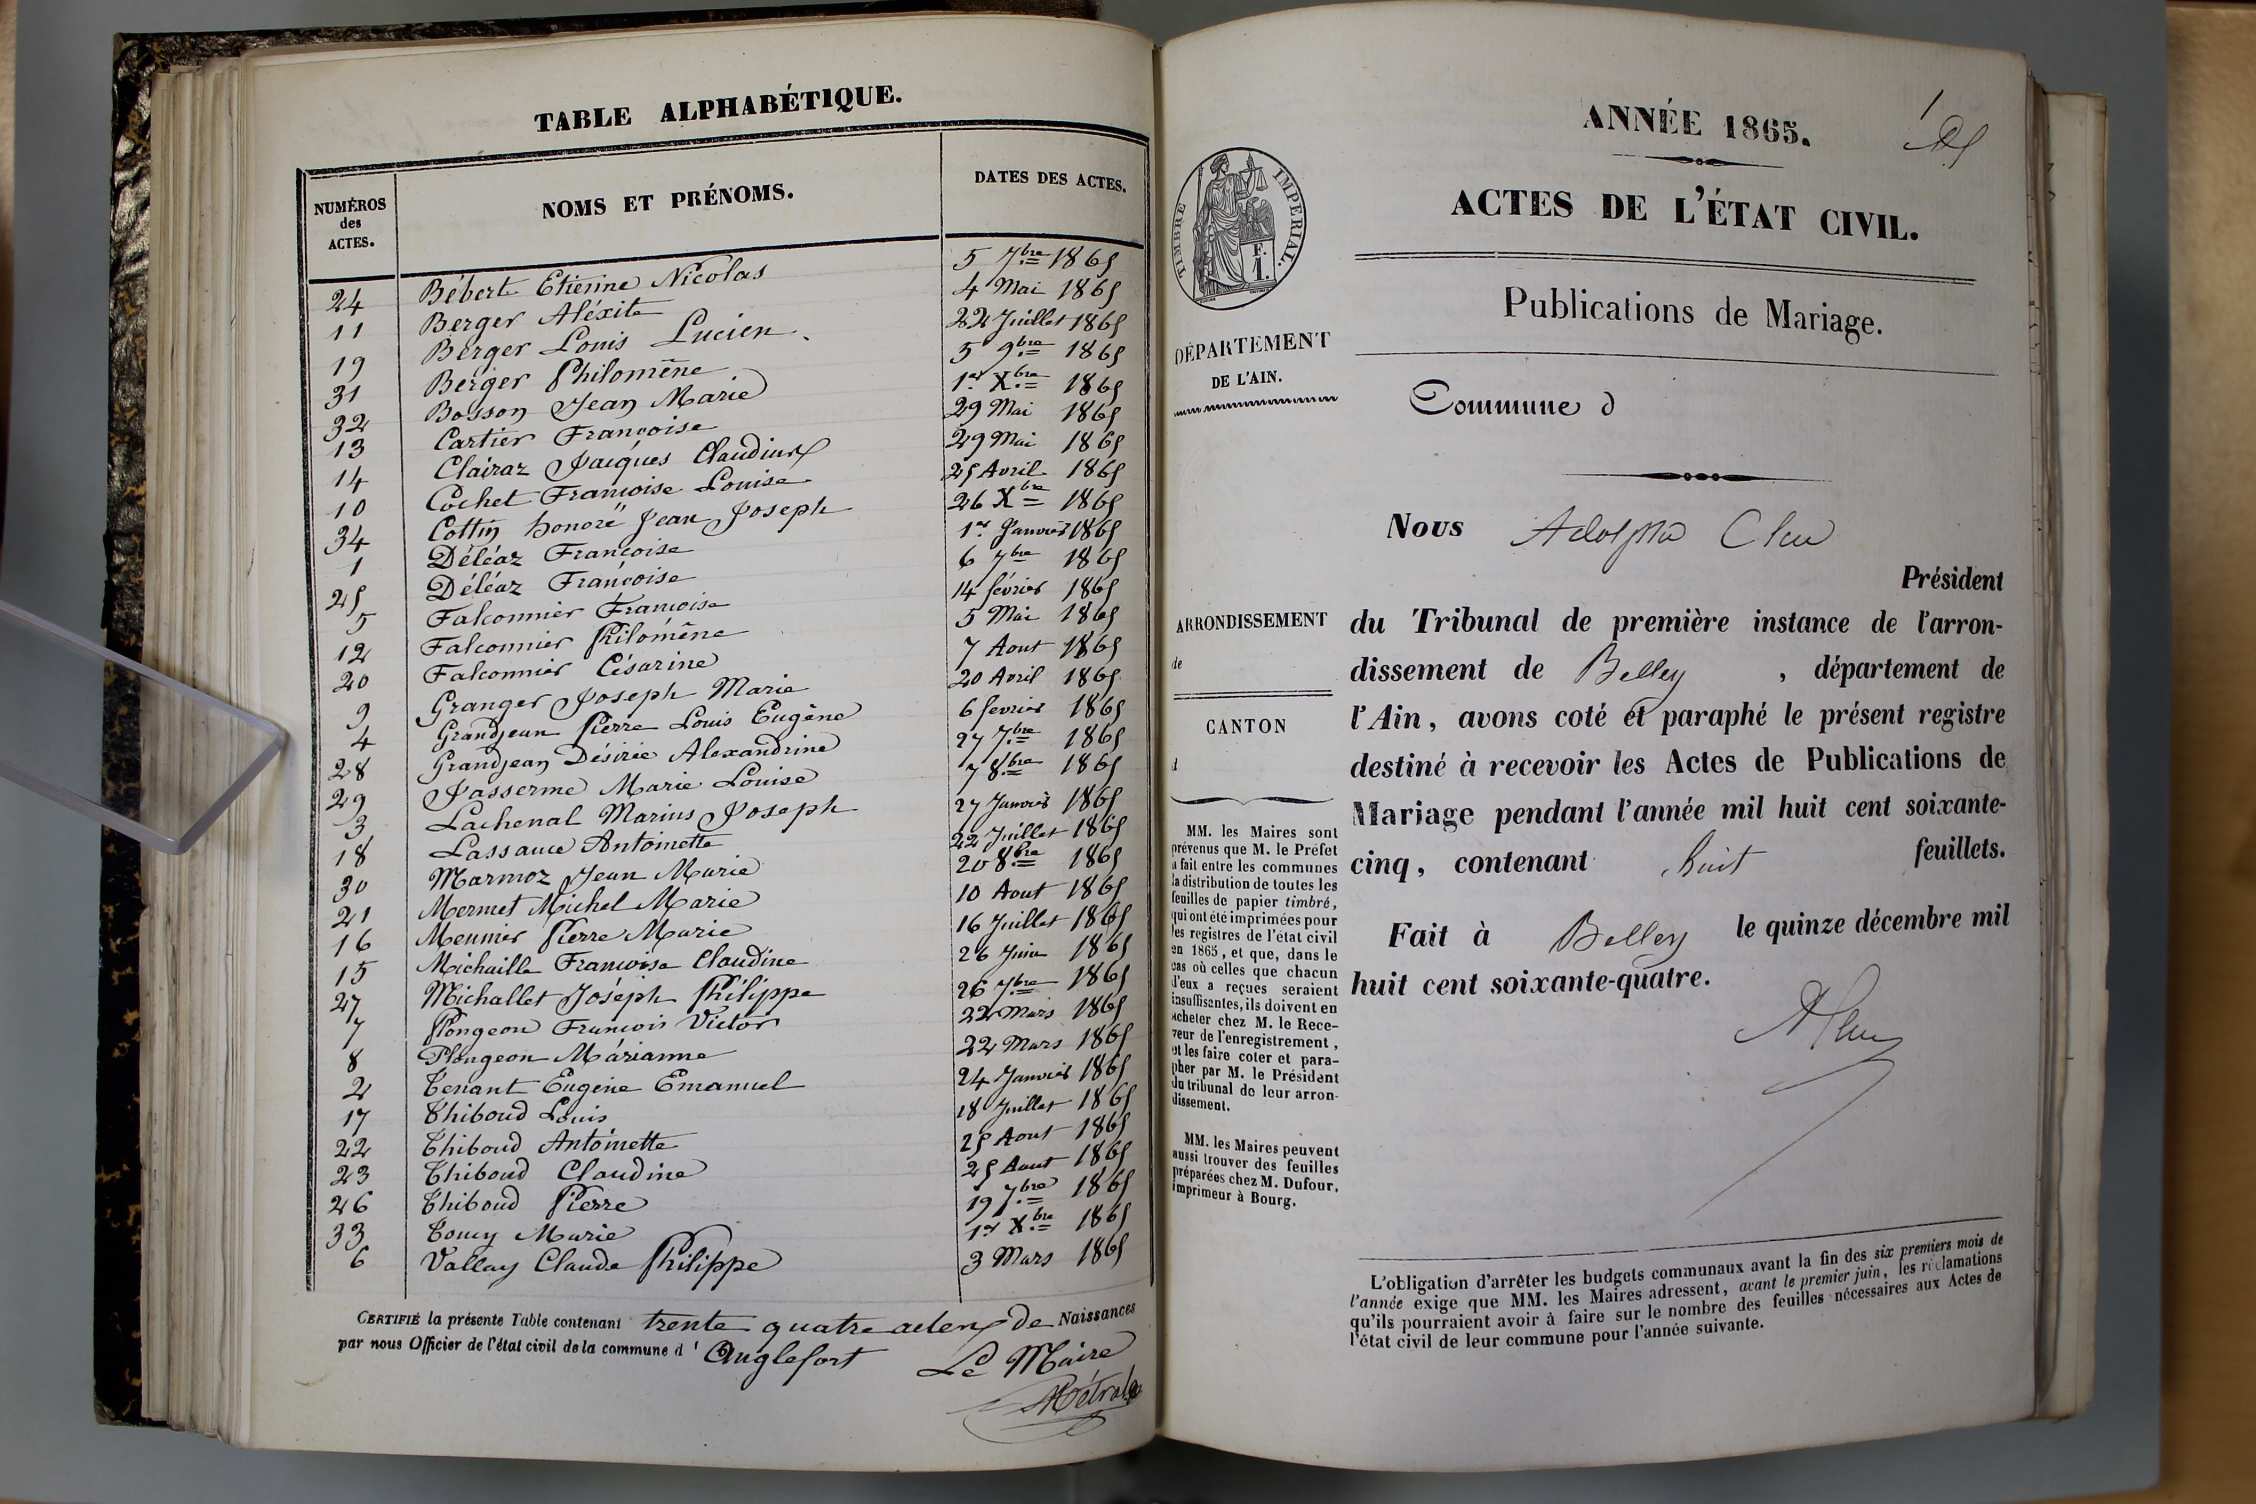 TABLE ALPHABÉTIQUE.
NUMÉROS des ACTES. NOMS ET PRÉNOMS. DATES DES ACTES.
24 Bébert Etienne Nicolas 5 7bre 1865
11 Berger Aléxite 4 Mai 1865
19 Berger Louis Lucien 22 Juillet 1865
31 Berger Philomène 5 9bre 1865
32 Bosson Jean Marie 1er Xbre 1865
13 Cartier Françoise 29 Mai 1865
14 Clairaz Jacques Claudius 29 Mai 1865
10 Cochet Françoise Louise 25 Avril 1865
34 Cottin honoré Jean Joseph 26 Xbre 1865
1 Déléaz Françoise 1er Janvier 1865
25 Déléaz Françoise 6 7bre 1865
5 Falconnier Françoise 14 février 1865
12 Falconnier Philomène 5 Mai 1865
20 Falconnier Césarine 7 Aout 1865
9 Granger Joseph Marie 20 Avril 1865
4 Grandjean Pierre Louis Eugène 6 fevrier 1865
28 Grandjean Désirée Alexandrine 27 7bre 1865
29 Jasserme Marie Louise 7 8bre 1865
3 Lachenal Marius Joseph 27 Janvier 1865
18 Lassauce Antoinette 22 Juillet 1865
30 Marmoz Jean Marie 20 8bre 1865
21 Mermet Michel Marie 10 Aout 1865
16 Meunier Pierre Marie 16 Juillet 1865
15 Michaille Françoise Claudine 26 Juin 1865
27 Michallet Joséph Philippe 26 7bre 1865
7 Plongeon François Victor 22 Mars 1865
8 Plongeon Marianne 22 Mars 1865
2 Tenant Eugène Emanuel 24 Janvier 1865
17 Thiboud Louis 18 Juillet 1865
22 Thiboud Antoinette 25 Aout 1865
23 Thiboud Claudine 25 Aout 1865
26 Thiboud Pierre 19 7bre 1865
33 Toury Marie 1er Xbre 1865
6 Vallay Claude Philippe 3 Mars 1865
CERTIFIÉ la présente Table contenant trente quatre actes de Naissances
par nous Officier de l'état civil de la commune d'Anglefort Le Maire
Métral
1
ANNÉE 1865.
ACTES DE L'ÉTAT CIVIL.
Publications de Mariage.
TIMBRE IMPERIAL.
F.
1.
DÉPARTEMENT
DE L'AIN.
Commune d
Nous Adolphe Cleu
Président
du Tribunal de première instance de l'arron-
dissement de Belley , département de
l'Ain, avons coté et paraphé le présent registre
destiné à recevoir les Actes de Publications de
Mariage pendant l'année mil huit cent soixante-
cinq, contenant huit feuillets.
Fait à Belley le quinze décembre mil
huit cent soixante-quatre.
ARRONDISSEMENT
de
CANTON
d
MM. les Maires sont
prévenus que M. le Préfet
a fait entre les communes
la distribution de toutes les
feuilles de papier timbré,
qui ont été imprimées pour
les registres de l'état civil
en 1865, et que, dans le
cas où celles que chacun
d'eux a reçues seraient
insuffisantes, ils doivent en
acheter chez M. le Rece-
veur de l'enregistrement,
et les faire coter et para-
pher par M. le Président
du tribunal de leur arron-
dissement.
MM. les Maires peuvent
aussi trouver des feuilles
préparées chez M. Dufour,
imprimeur à Bourg.
L'obligation d'arrêter les budgets communaux avant la fin des six premiers mois de
l'année exige que MM. les Maires adressent, avant le premier juin, les réclamations
qu'ils pourraient avoir à faire sur le nombre des feuilles nécessaires aux Actes de
l'état civil de leur commune pour l'année suivante.